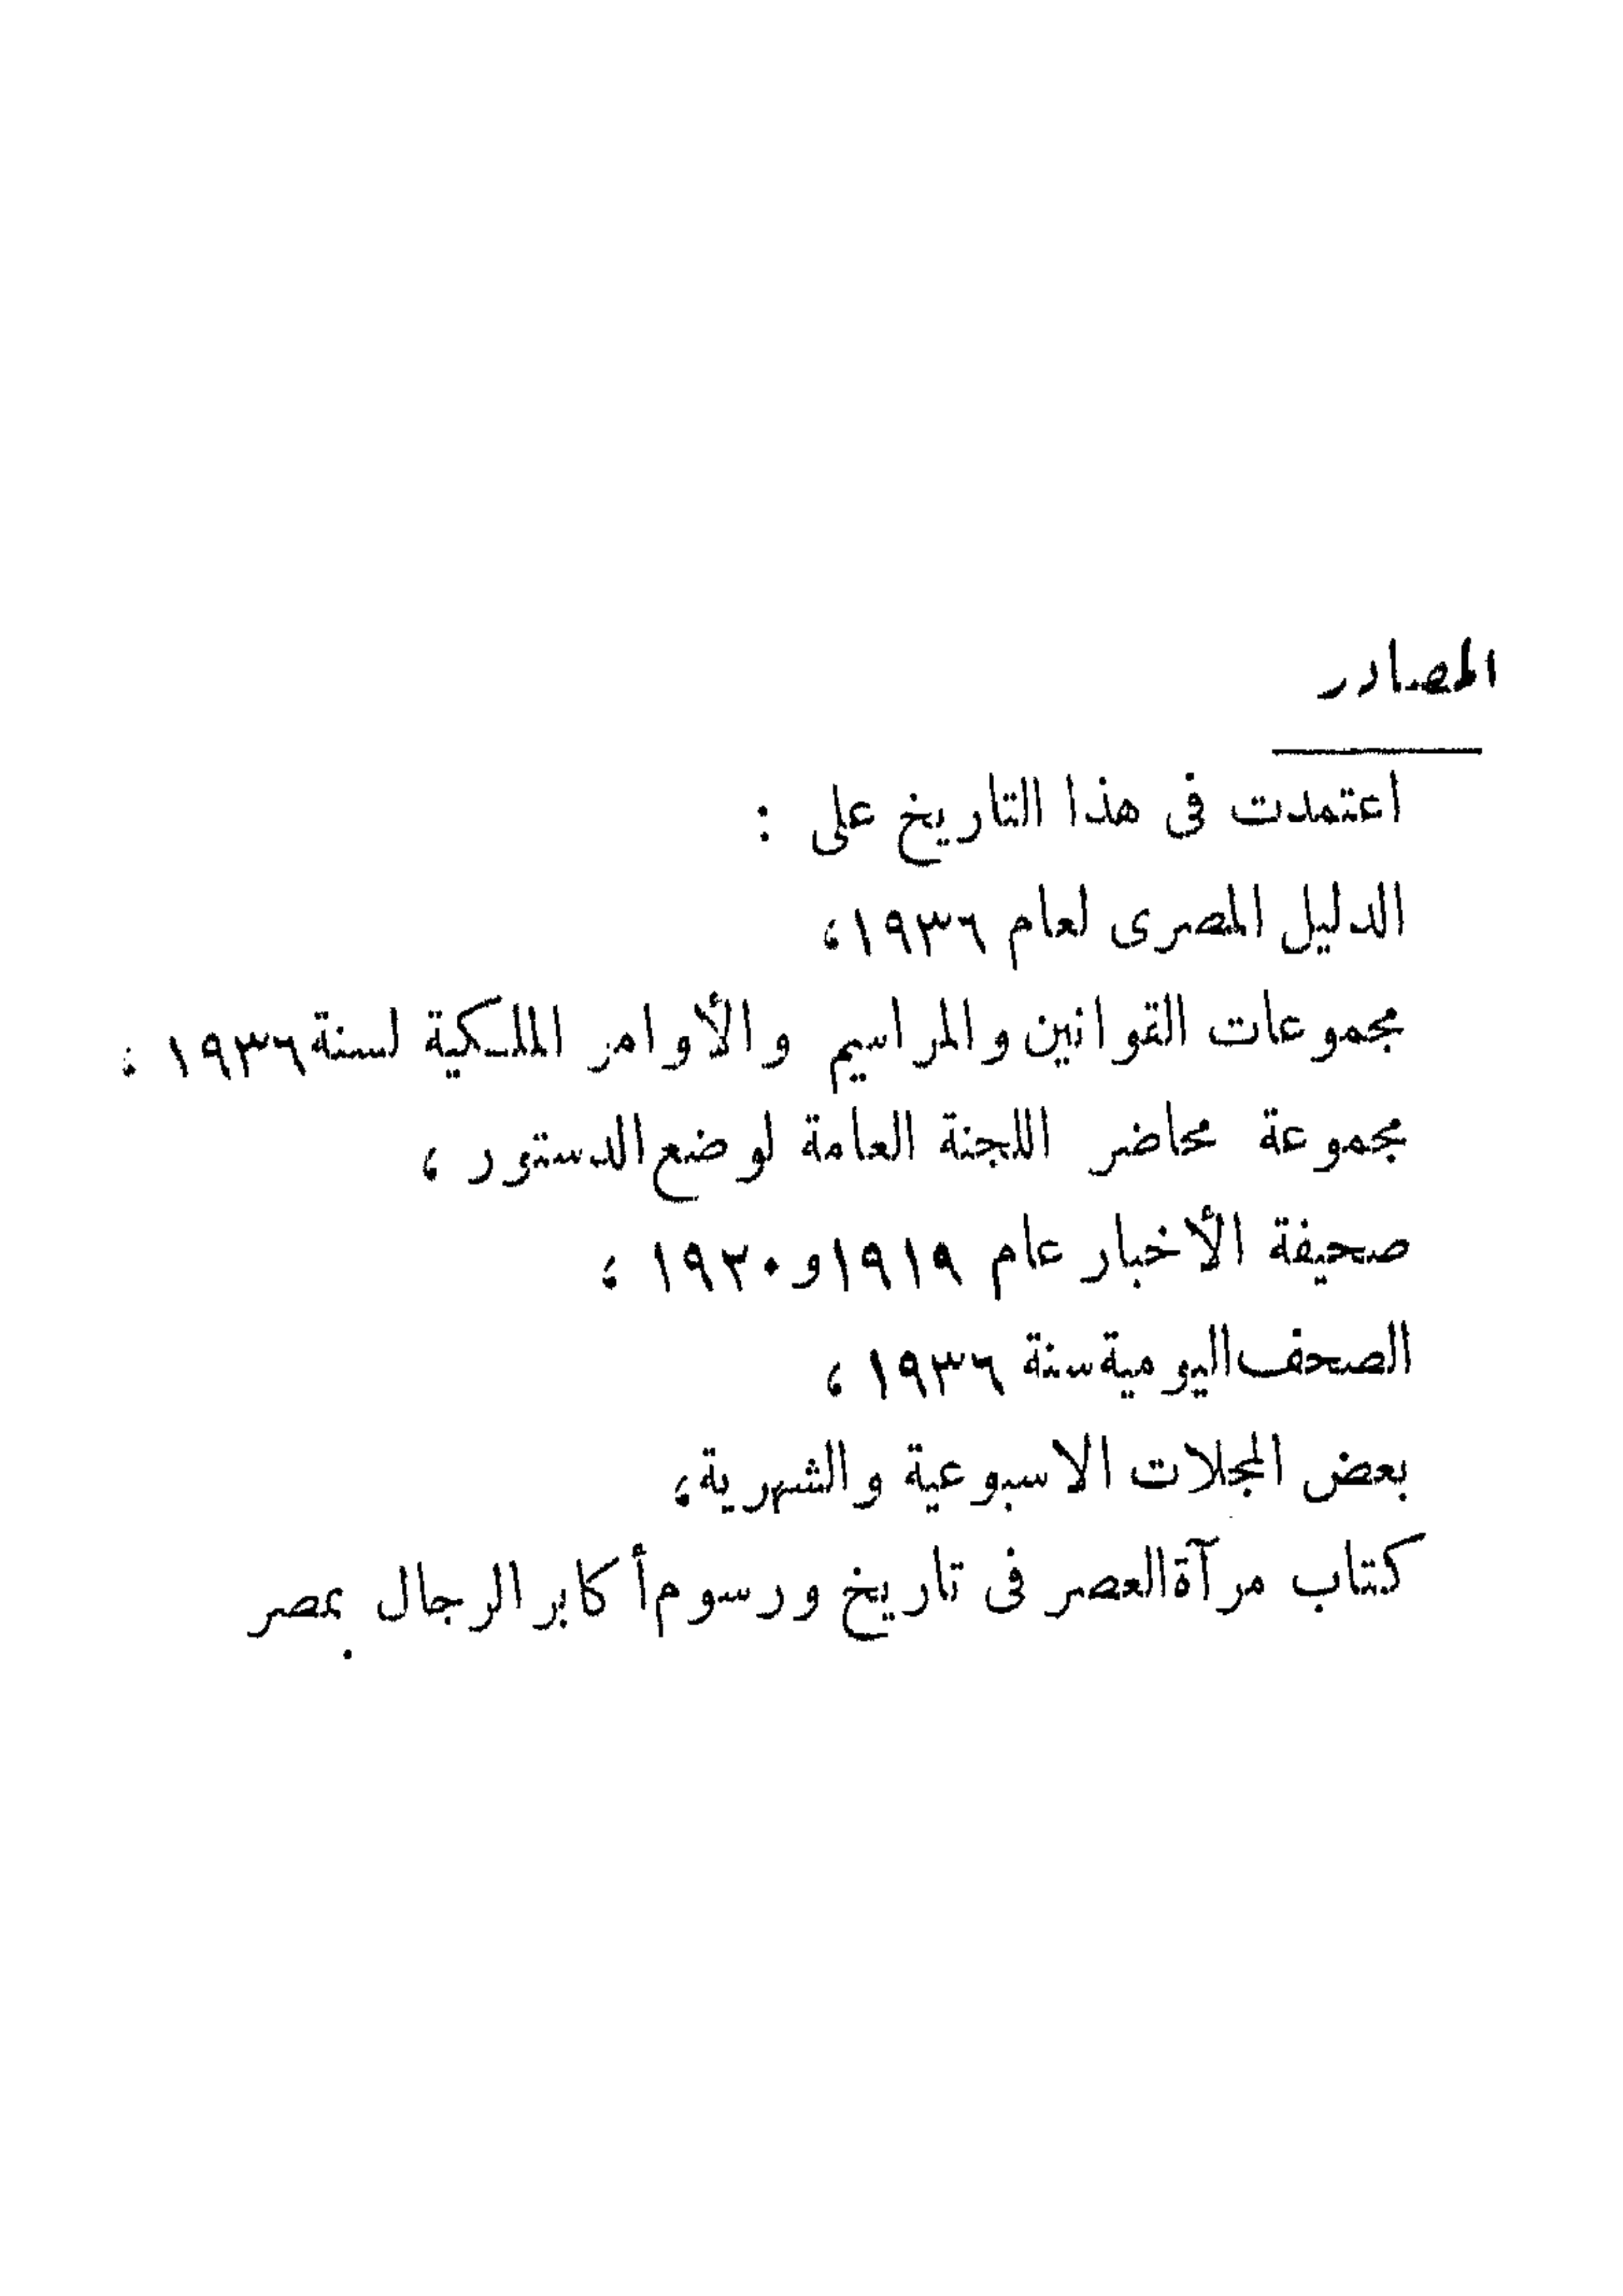 المصادر
اعتمدت فى هذا التاريخ على :
الدليل المصرى لعام ١٩٣٦،
مجموعات القوانين والمراسيم والأوامر الملكية لسنة ١٩٣٦ ،
مجموعة محاضر اللجنة العامة لوضع الدستور ،
صحيفة الأخبار عام ١٩١٩ و ١٩٢٠ ،
الصحف اليومية سنة ١٩٣٦ ،
بعض المجلات الاسبوعية والشهرية ،
كتاب مرآة العصر فى تاريخ ورسوم أكابر الرجال بمصر